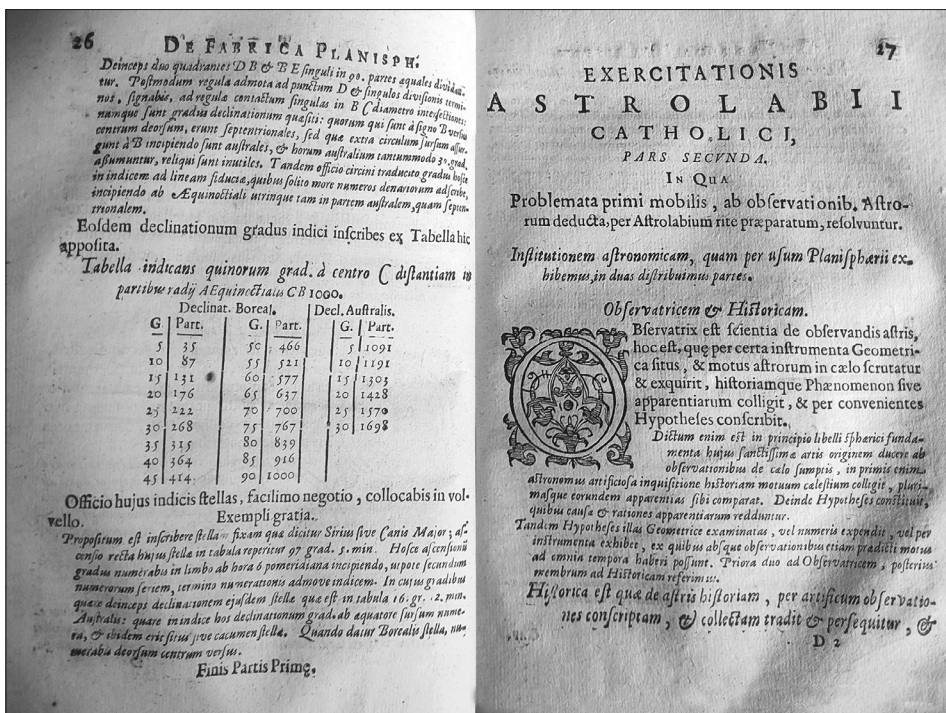 26
DE FABRICA PLANISPH.
Deinceps duo quadrantes D B & B E singuli in 90. partes æquales dividan-
tur. Postmodum regula admota ad punctum D & singulos divisionis termi-
nos, signabis, ad regulæ contactum singulas in B C diametro intersectiones:
namque sunt gradus declinationum quæsiti: quorum qui sunt à signo B versus
centrum deorsum, erunt septentrionales, sed quæ extra circulum sursum assur-
gunt à B incipiendo sunt australes, & horum australium tantummodo 30. grad.
assumuntur, reliqui sunt inutiles. Tandem officio circini traducito gradus hosce
in indicem ad lineam fiduciæ, quibus solito more numeros denariorum adscribe,
incipiendo ab Æquinoctiali utrinque tam in partem australem, quam septen-
trionalem.
Eosdem declinationum gradus indici inscribes ex Tabella hic
apposita.
Tabella indicans quinorum grad. à centro C distantiam in
partibus radij AEquinoctialis CB 1000.
Declinat. Boreal. Decl. Australis.
G. Part. G. Part. G. Part.
5 35 50 466 5 1091
10 87 55 521 10 1191
15 131 60 577 15 1303
20 176 65 637 20 1428
25 222 70 700 25 1570
30 268 75 767 30 1698
35 315 80 839
40 364 85 916
45 414 90 1000
Officio hujus indicis stellas, facilimo negotio, collocabis in vol-
vello. Exempli gratia.
Propositum est inscribere stellam fixam quæ dicitur Sirius sive Canis Major; as-
censio recta hujus stellæ in tabula reperitur 97 grad. 5. min. Hosce ascensionis
gradus numerabis in limbo ab hora 6 pomeridiana incipiendo, utpote secundum
numerorum seriem, termino numerationis admove indicem. In cujus gradibus
quære deinceps declinationem ejusdem stellæ quæ est in tabula 16. gr. 12. min.
Australis: quare in indice hos declinationum grad. ab æquatore sursum nume-
ra, & ibidem erit situs sive cacumen stellæ. Quando datur Borealis stella, nu-
merabis deorsum centrum versus.
Finis Partis Primę.
27
EXERCITATIONIS
ASTROLABII
CATHOLICI,
PARS SECVNDA.
IN QUA
Problemata primi mobilis, ab observationib. Astro-
rum deducta, per Astrolabium rite præparatum, resolvuntur.
Institutionem astronomicam, quam per usum Planisphærii ex-
hibemus, in duas distribuimus partes.
Observatricem & Historicam.
OBservatrix est scientia de observandis astris,
hoc est, quę per certa instrumenta Geometri-
ca situs, & motus astrorum in cælo scrutatur
& exquirit, historiamque Phænomenon sive
apparentiarum colligit, & per convenientes
Hypotheses conscribit.
Dictum enim est in principio libelli sphærici funda-
menta hujus sanctissimæ artis originem ducere ab
observationibus de cælo sumptis, in primis enim
astronomus artificiosa inquisitione historiam motuum cælestium colligit, pluri-
masque eorundem apparentias sibi comparat. Deinde Hypotheses constituit,
quibus causæ & rationes apparentiarum redduntur.
Tandem Hypotheses illas Geometrice examinatas, vel numeris expendit, vel per
instrumenta exhibet, ex quibus absque observationibus etiam prædicti motus
ad omnia tempora haberi possunt. Priora duo ad Observatricem, posterius
membrum ad Historicam referimus.
Historica est quæ de astris historiam, per artificum observatio-
nes conscriptam, & collectam tradit & persequitur, &
D 2